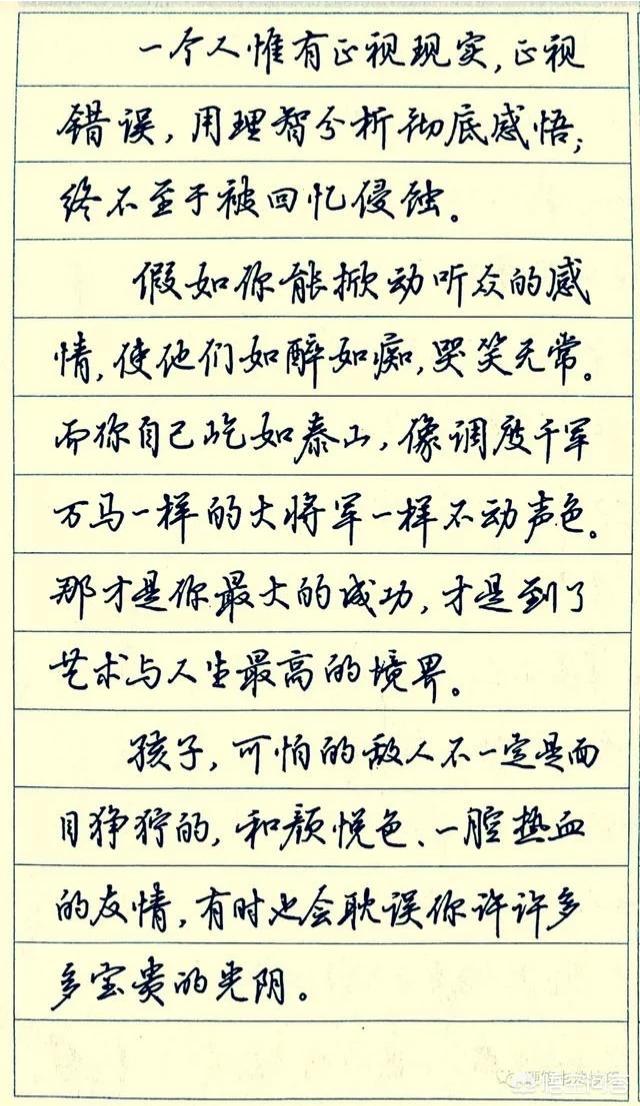 一个人惟有正视现实,正视
错误,用理智分析彻底感悟;
终不至于被回忆侵蚀。
假如你能掀动听众的感
情,使他们如醉如痴,哭笑无常。
而你自己屹如泰山,像调度千军
万马一样的大将军一样不动声色。
那才是你最大的成功,才是到了
艺术与人生最高的境界。
孩子,可怕的敌人不一定是面
目狰狞的,和颜悦色、一腔热血
的友情,有时也会耽误你许许多
多宝贵的光阴。